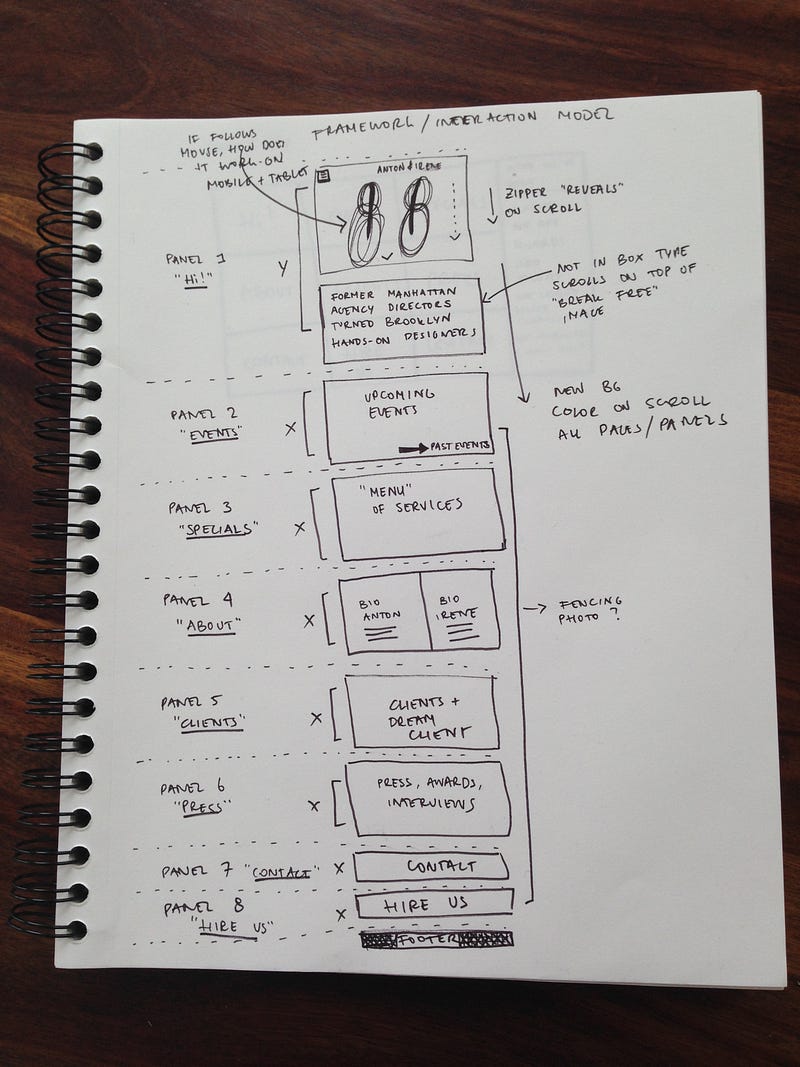 FRAMEWORK / INTERACTION MODEL
IF FOLLOWS
MOUSE, HOW DOES
IT WORK ON
MOBILE + TABLET
ANTON & IRENE
ZIPPER "REVEALS"
ON SCROLL
PANEL 1
"Hi!"
Y
FORMER MANHATTAN
AGENCY DIRECTORS
TURNED BROOKLYN
HANDS-ON DESIGNERS
NOT IN BOX TYPE
SCROLLS ON TOP OF
"BREAK FREE"
IMAGE
NEW BG
COLOR ON SCROLL
ALL PAGES/PANELS
PANEL 2
"EVENTS"
X
UPCOMING
EVENTS
PAST EVENTS
PANEL 3
"SPECIALS"
X
"MENU"
OF SERVICES
PANEL 4
"ABOUT"
X
BIO
ANTON
BIO
IRENE
FENCING
PHOTO ?
PANEL 5
"CLIENTS"
X
CLIENTS +
DREAM
CLIENT
PANEL 6
"PRESS"
X
PRESS, AWARDS,
INTERVIEWS
PANEL 7 "CONTACT" X
CONTACT
PANEL 8
"HIRE US"
X
HIRE US
FOOTER